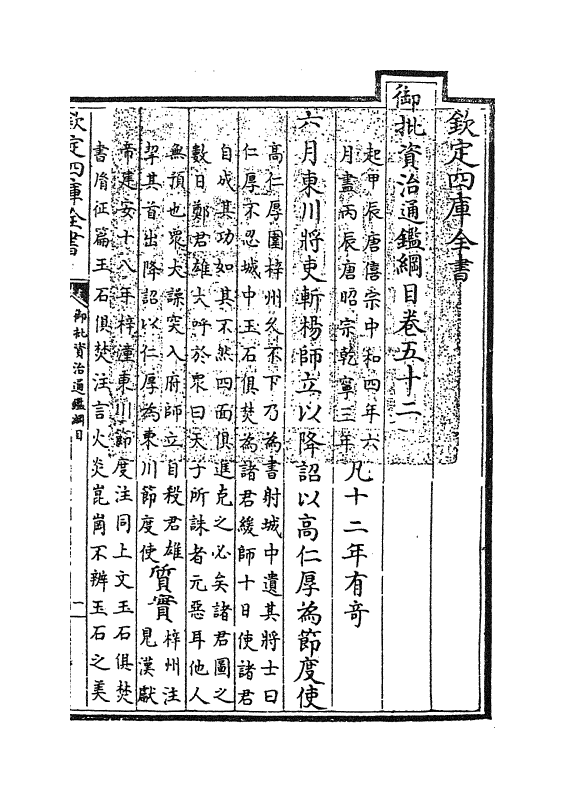 欽定四庫全書
御批資治通鑑綱目卷五十二
起甲辰唐僖宗中和四年六
月盡丙辰唐昭宗乾寧三年
凡十二年有奇
六月東川將吏斬楊師立以降詔以高仁厚為節度使
高仁厚圍梓州久不下乃為書射城中遺其將士曰
仁厚不忍城中玉石俱焚為諸君緩師十日使諸君
自成其功如其不然四面俱進克之必矣諸君圖之
數日鄭君雄大呼於衆曰天子所誅者元惡耳他人
無預也衆大譟突入府師立自殺君雄
挈其首出降詔以仁厚為東川節度使
質實
梓州注
見漢獻
帝建安十八年梓潼東川節度注同上文玉石俱焚
書胤征篇玉石俱焚注言火炎崑岡不辨玉石之美
欽定四庫全書
御批資治通鑑綱目
一